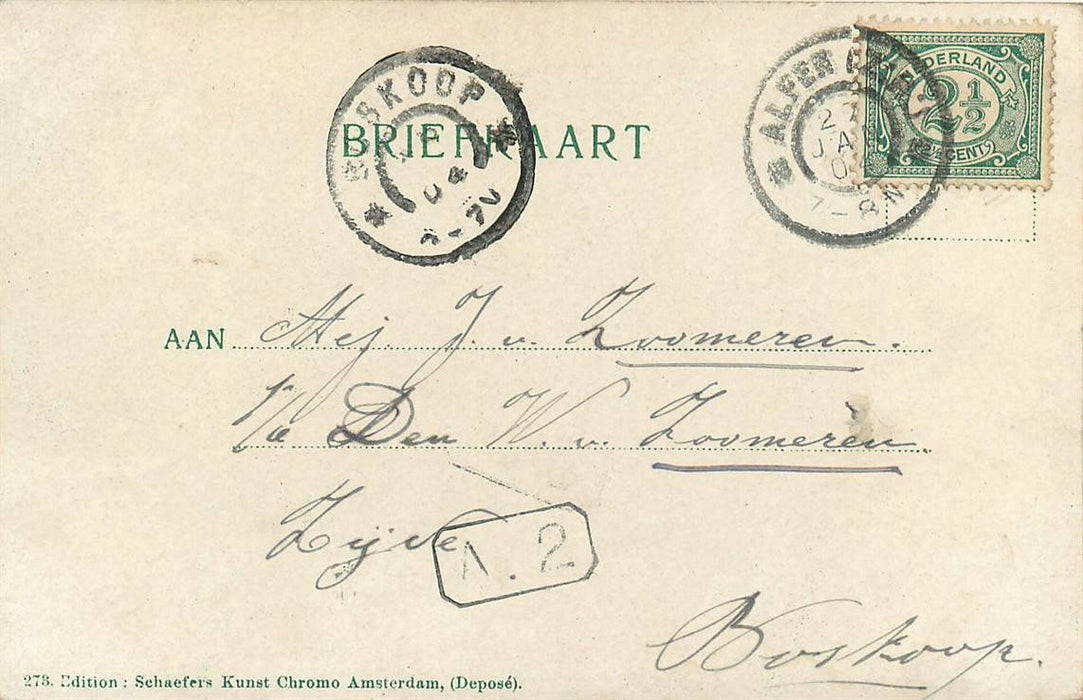 BRIEFKAART
BOSKOOP
ALPEN
JAN
7-8N
NEDERLAND
2½
2½ CENT
AAN Mej. J. v. Zoomeren.
p/a Den W. v. Zoomeren
Zijde
A.2
Boskoop.
273. Edition : Schaefers Kunst Chromo Amsterdam, (Deposé).